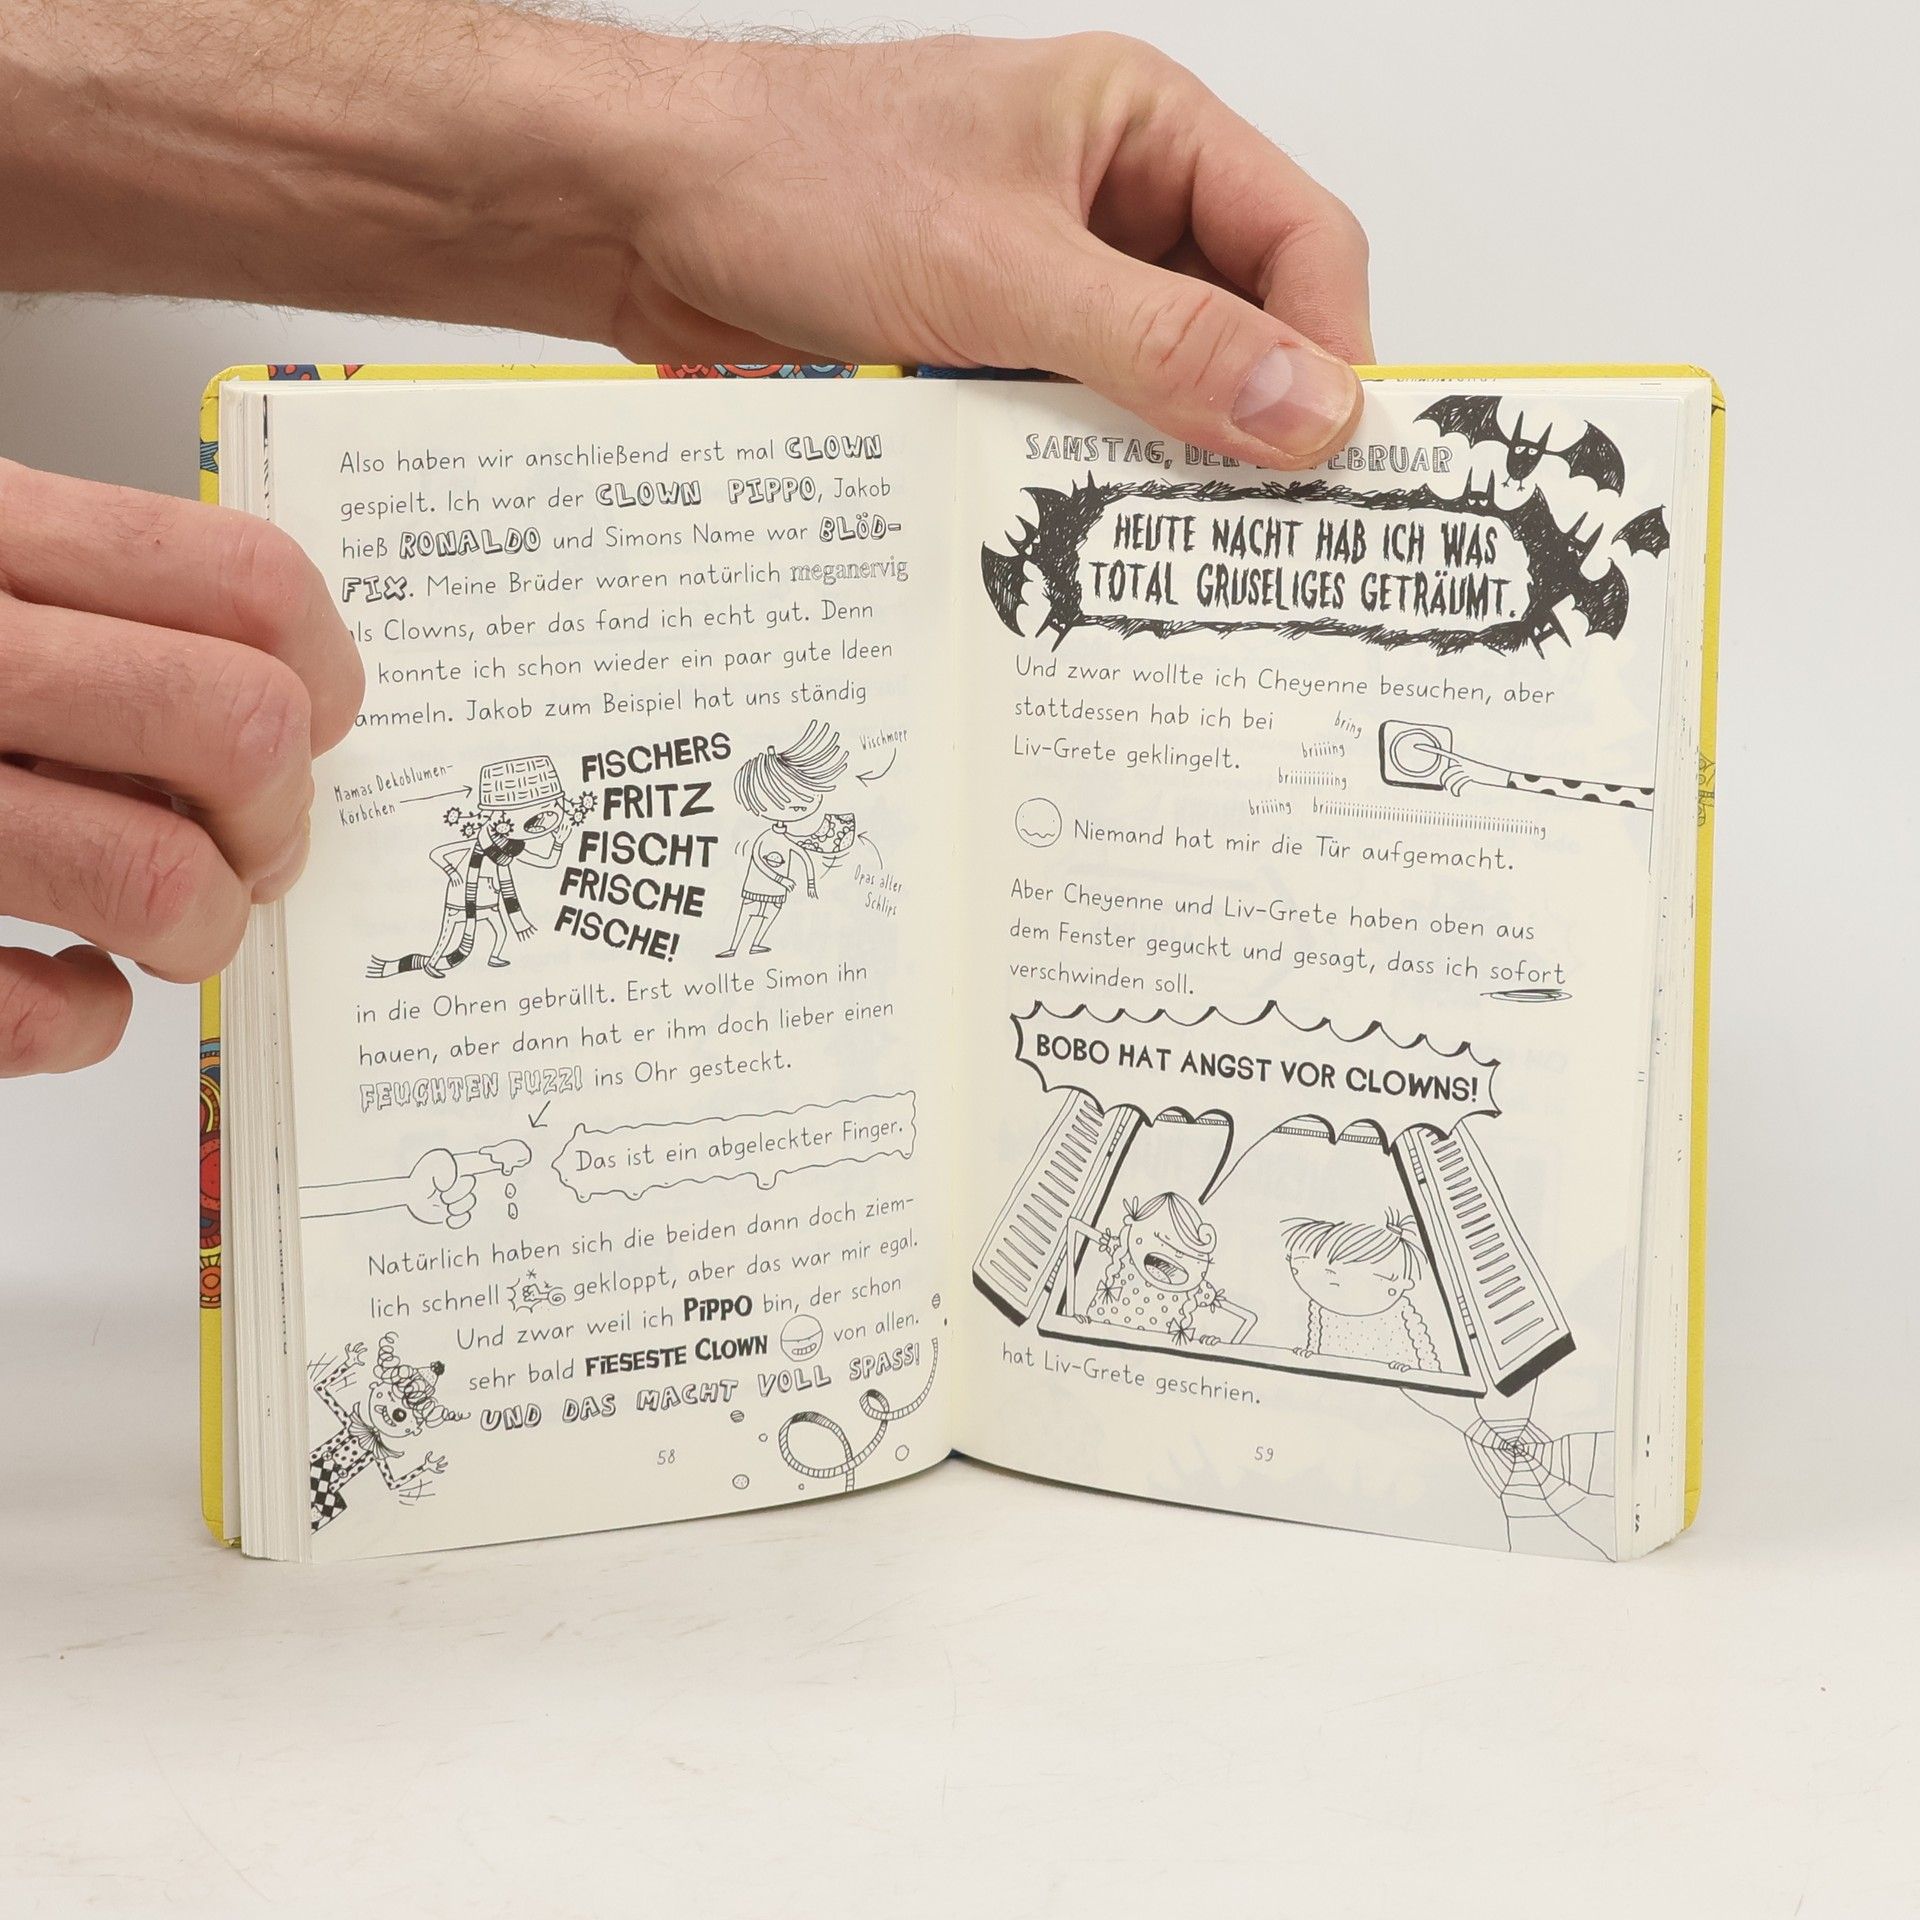 Also haben wir anschließend erst mal CLOWN
gespielt. Ich war der CLOWN PIPPO, Jakob
hieß RONALDO und Simons Name war BLÖD-
FIX. Meine Brüder waren natürlich meganervig
als Clowns, aber das fand ich echt gut. Denn
konnte ich schon wieder ein paar gute Ideen
ammeln. Jakob zum Beispiel hat uns ständig
Mamas Dekoblumen-
Körbchen
FISCHERS
FRITZ
FISCHT
FRISCHE
FISCHE!
Wischmopp
Opas alter
Schlips
in die Ohren gebrüllt. Erst wollte Simon ihn
hauen, aber dann hat er ihm doch lieber einen
FEUCHTEN FUZZI ins Ohr gesteckt.
Das ist ein abgeleckter Finger.
Natürlich haben sich die beiden dann doch ziem-
lich schnell gekloppt, aber das war mir egal.
Und zwar weil ich PiPPO bin, der schon
sehr bald FiESESTE CLOWN von allen.
UND DAS MACHT VOLL SPASS!
58
SAMSTAG, DER FEBRUAR
HEUTE NACHT HAB ICH WAS
TOTAL GRUSELIGES GETRÄUMT.
Und zwar wollte ich Cheyenne besuchen, aber
stattdessen hab ich bei
Liv-Grete geklingelt.
bring
briiiing
briiiiiiiiiiing
briiiing briiiiiiiiiiiiiiiiiiiiiiiiiiiiiiiiiiiiiiiiiiiing
Niemand hat mir die Tür aufgemacht.
Aber Cheyenne und Liv-Grete haben oben aus
dem Fenster geguckt und gesagt, dass ich sofort
verschwinden soll.
BOBO HAT ANGST VOR CLOWNS!
hat Liv-Grete geschrien.
59